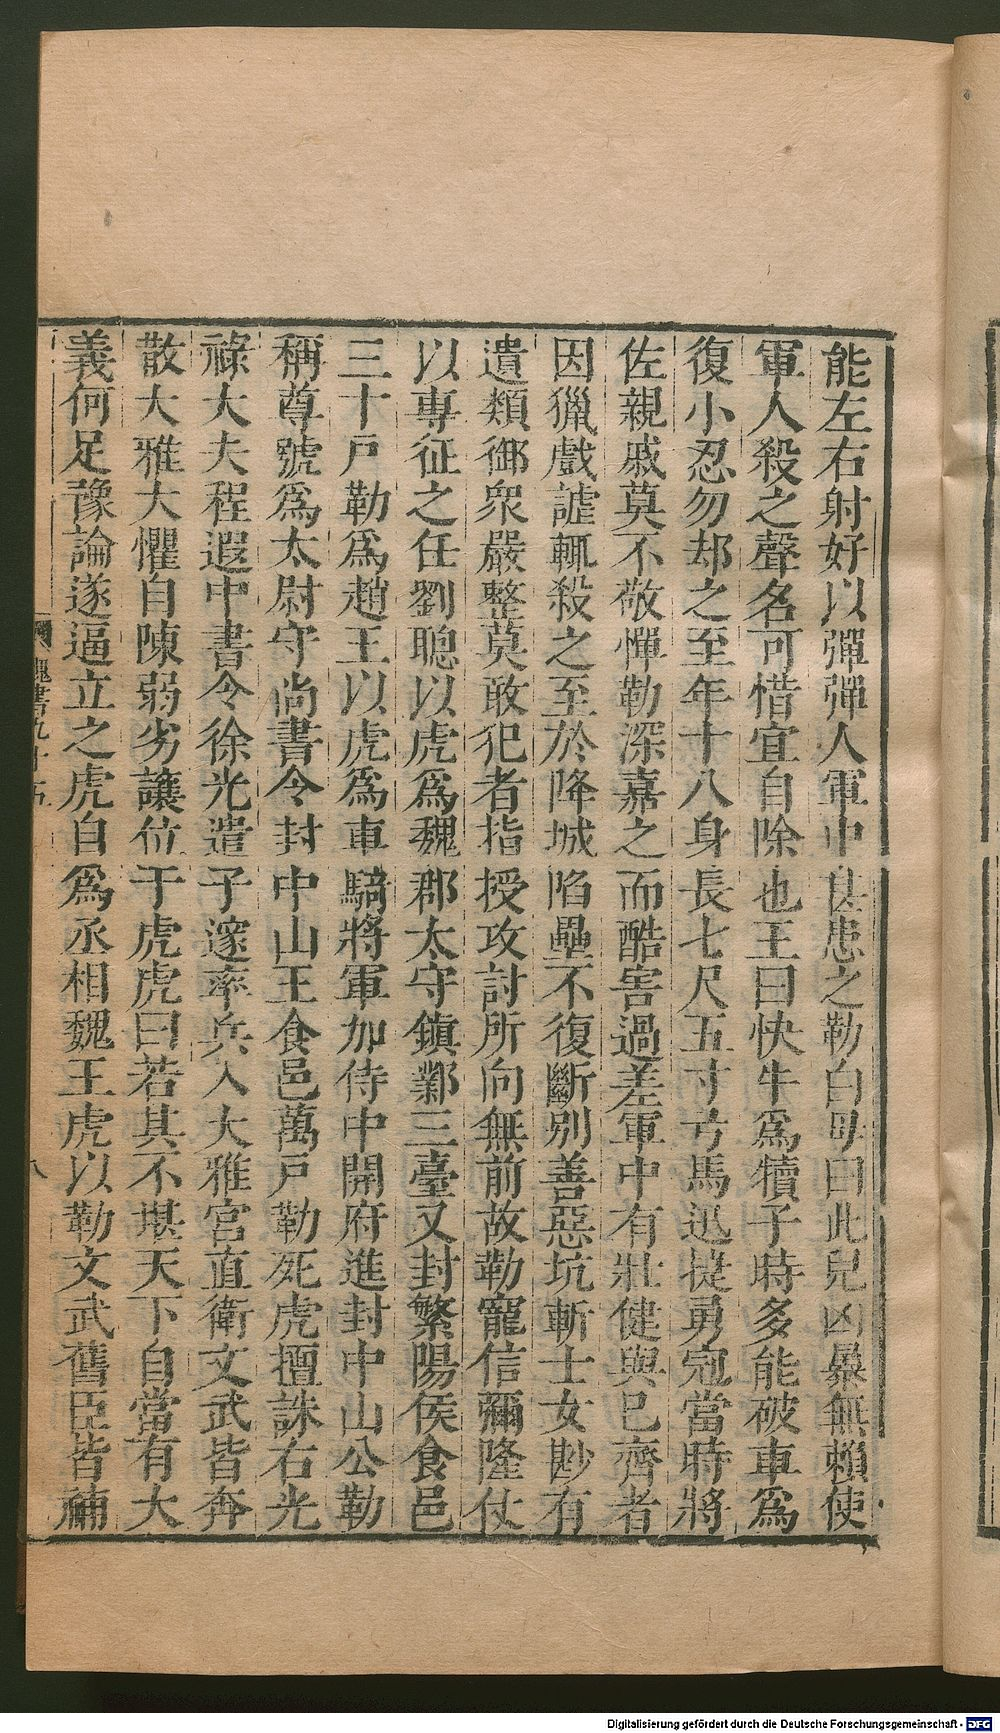 能左右射好以彈彈人軍中甚患之勒白母曰此兒凶暴無賴使
軍人殺之聲名可惜宜自除也王曰快牛爲犢子時多能破車爲
復小忍勿却之至年十八身長七尺五寸弓馬迅捷勇冠當時將
佐親戚莫不敬憚勒深嘉之而酷害過差軍中有壯健與已齊者
因獵戲謔輒殺之至於降城陷壘不復斷別善惡坑斬士女尠有
遺類御衆嚴整莫敢犯者指授攻討所向無前故勒寵信彌隆仗
以專征之任劉聰以虎爲魏郡太守鎮鄴三臺又封繁陽侯食邑
三十戶勒爲趙王以虎爲車騎將軍加侍中開府進封中山公勒
稱尊號爲太尉守尚書令封中山王食邑萬戶勒死虎擅誅右光
祿大夫程遐中書令徐光遣子邃率兵入大雅宮直衛文武皆奔
散大雅大懼自陳弱劣讓位于虎虎曰若其不堪天下自當有大
義何足豫論遂逼立之虎自爲丞相魏王虎以勒文武舊臣皆補
魏書九十五
八
Digitalisierung gefördert durch die Deutsche Forschungsgemeinschaft - DFG